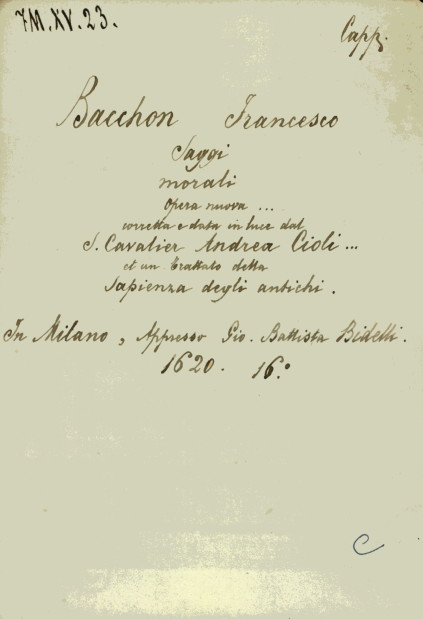 7M.XV.23.
Capp.
Bacchon Francesco
Saggi
morali
opera nuova ...
corretta e data in luce dal
S. Cavalier Andrea Cioli ...
et un Trattato della
Sapienza degli antichi.
In Milano, Appresso Gio. Battista Bidelli.
1620. 16.°
C